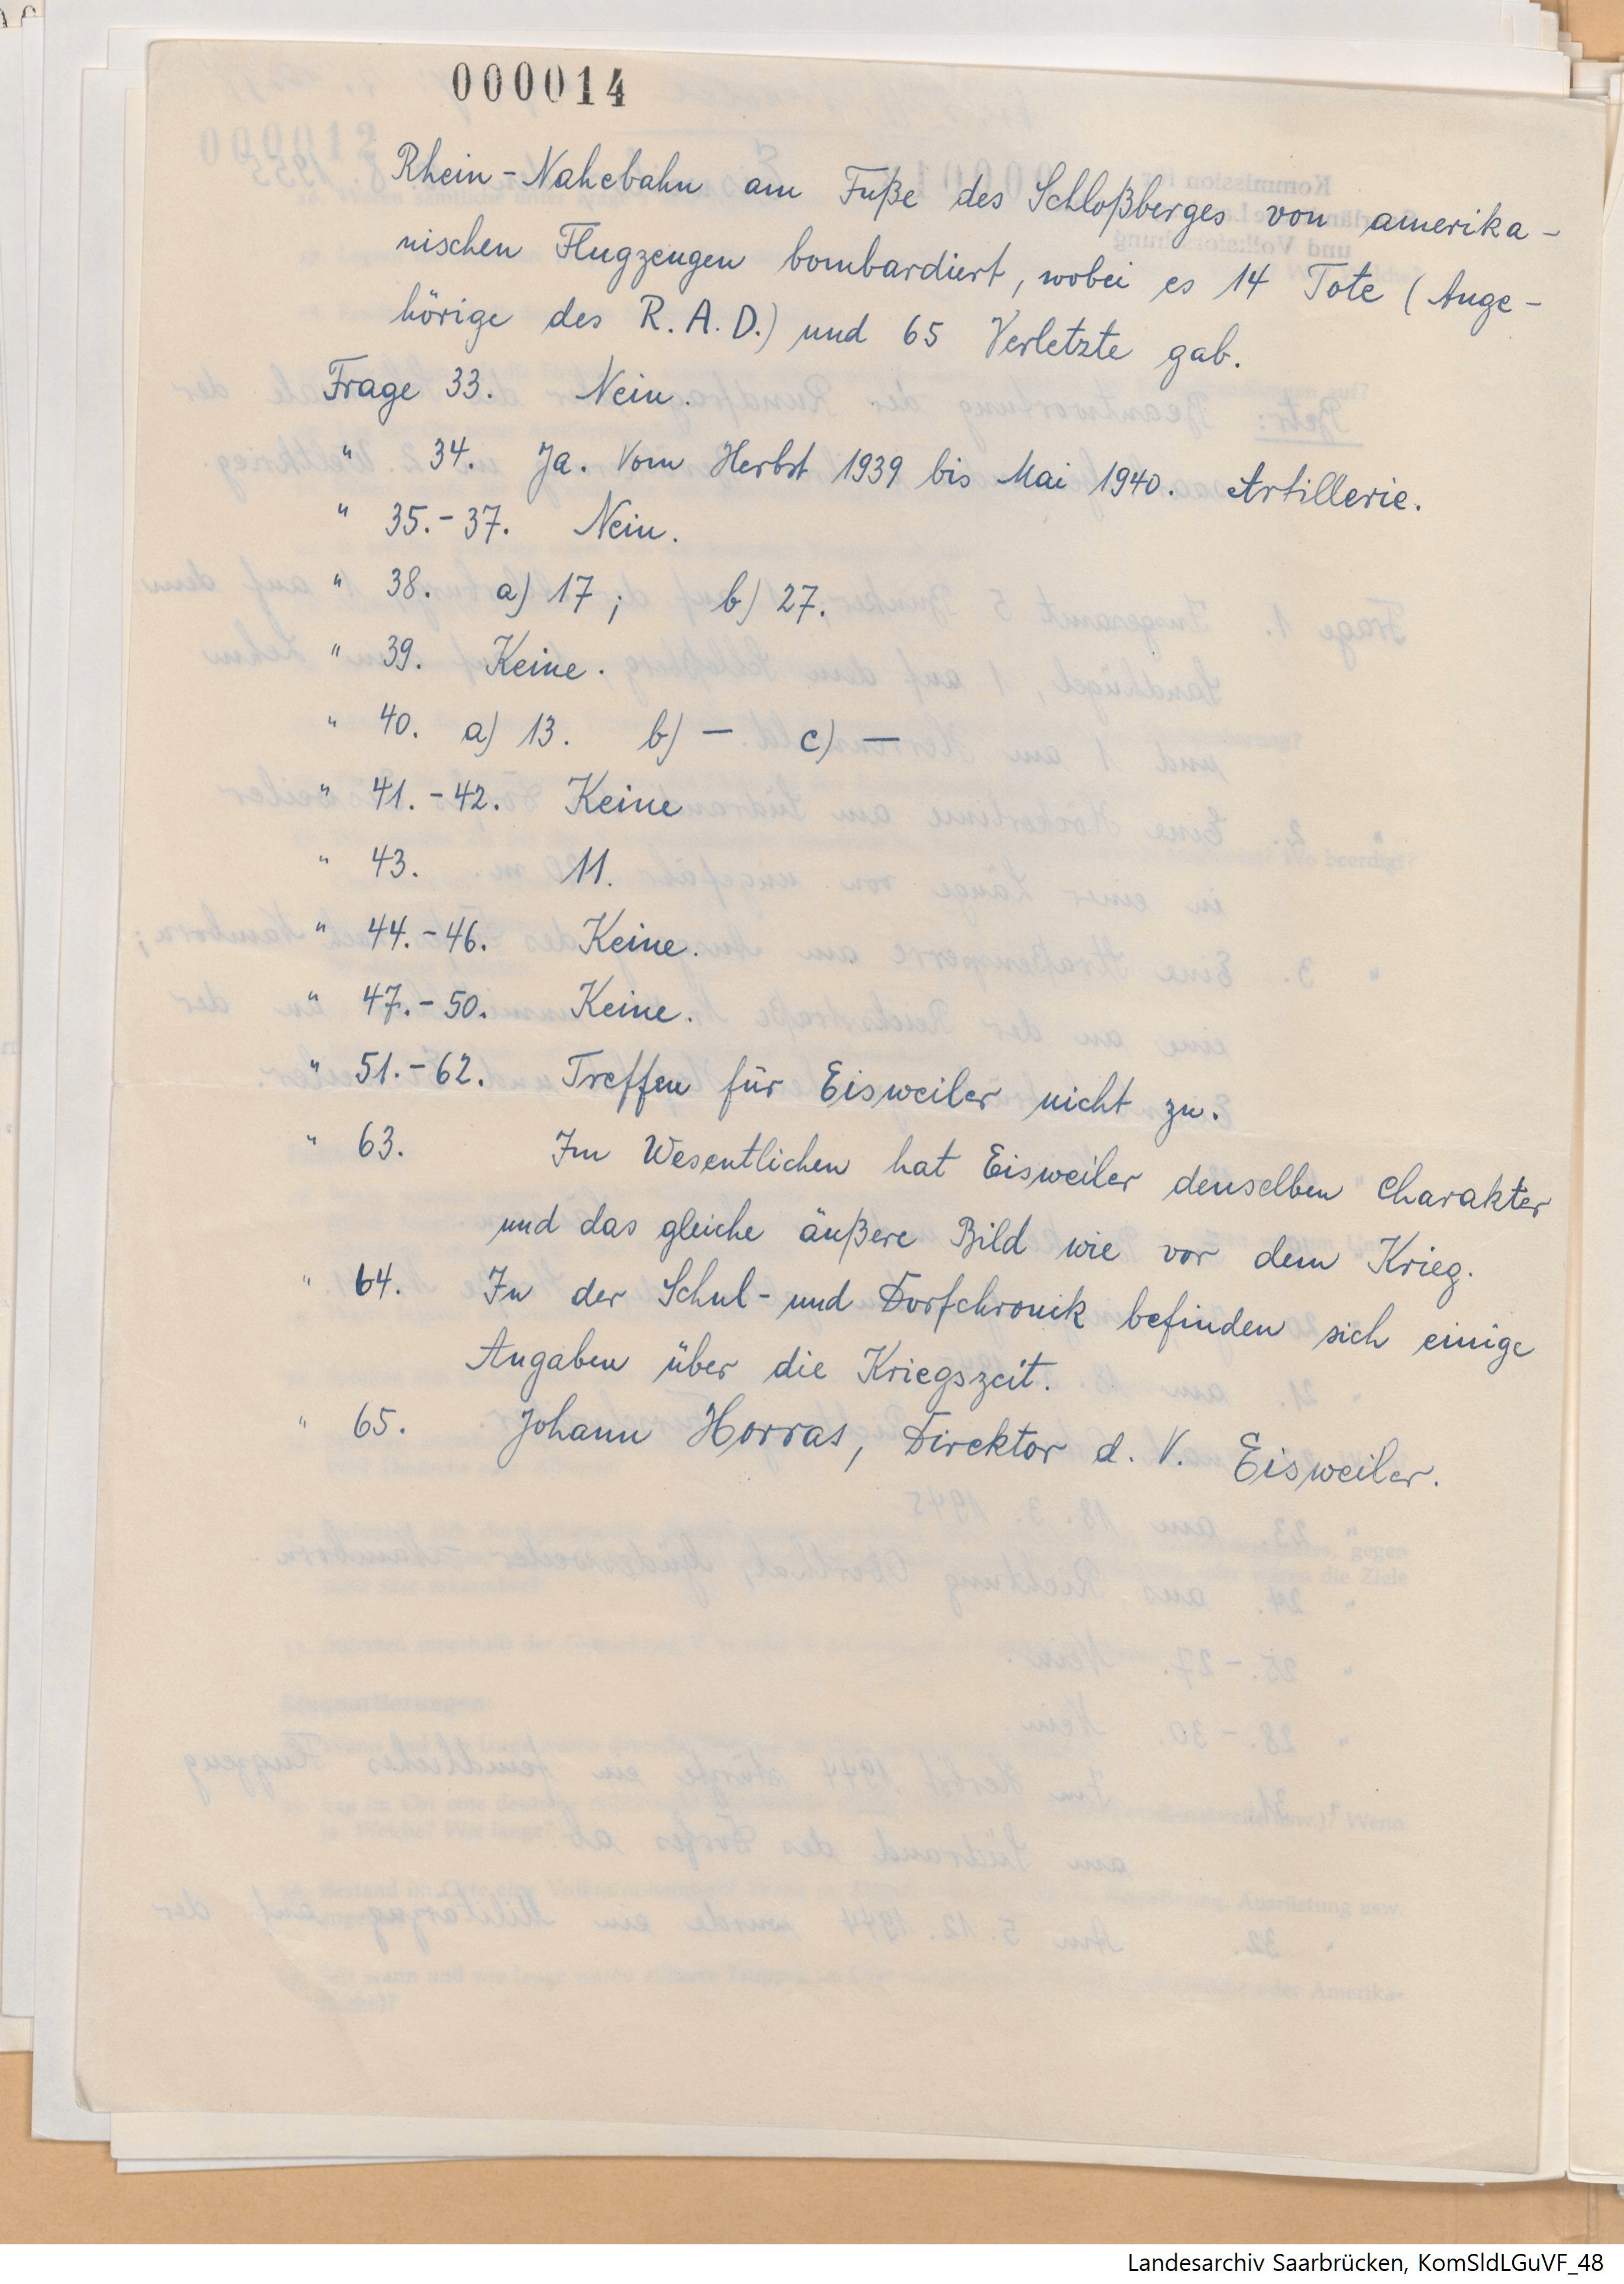 000014
Rhein-Nahebahn am Fuße des Schloßberges von amerika-
nischen Flugzeugen bombardiert, wobei es 14 Tote (Ange-
hörige des R.A.D.) und 65 Verletzte gab.
Frage 33. Nein.
" 34. Ja. Vom Herbst 1939 bis Mai 1940. Artillerie.
" 35.-37. Nein.
" 38. a) 17; b) 27.
" 39. Keine.
" 40. a) 13. b) — c) —
" 41.-42. Keine
" 43. 11.
" 44.-46. Keine.
" 47.-50. Keine.
" 51.-62. Treffen für Eisweiler nicht zu.
" 63. Im Wesentlichen hat Eisweiler denselben Charakter
und das gleiche äußere Bild wie vor dem Krieg.
" 64. In der Schul- und Dorfchronik befinden sich einige
Angaben über die Kriegszeit.
" 65. Johann Horras, Direktor d. V. Eisweiler.
Landesarchiv Saarbrücken, KomSldLGuVF_48